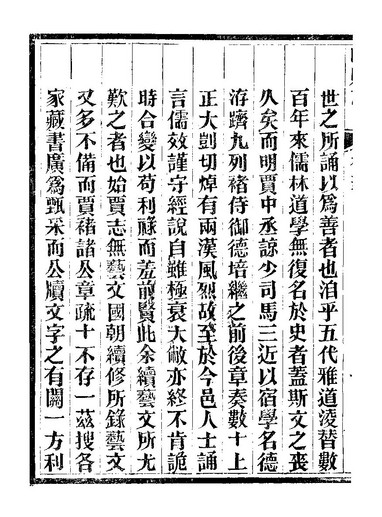 世之所誦以爲善者也洎乎五代雅道淩替數
百年來儒林道學無復名於史者蓋斯文之喪
久矣而明賈中丞諒少司馬三近以宿學名德
洊躋九列褚侍御德培繼之前後章奏數十上
正大剴切焯有兩漢風烈故至於今邑人士誦
言儒效謹守經說自雖極衰大敝亦終不肯詭
時合變以苟利祿而羞前賢此余續藝文所尤
歎之者也始賈志無藝文國朝續修所錄藝文
又多不備而賈褚諸公章疏十不存一茲搜各
家藏書廣爲甄采而公牘文字之有關一方利